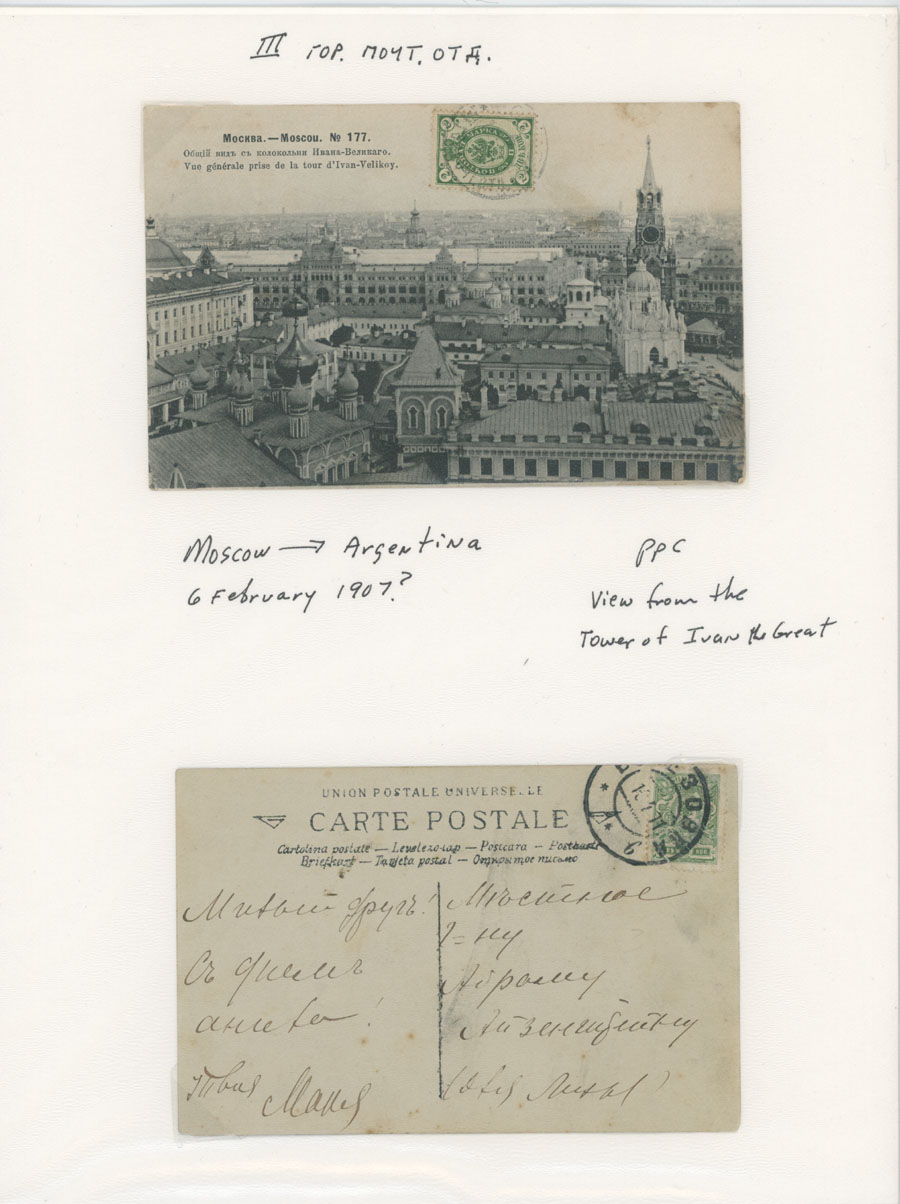 III гор. почт. отд.
Москва.—Moscou. № 177.
Общій видъ съ колокольни Ивана-Великаго.
Vue générale prise de la tour d'Ivan-Velikoy.
Moscow → Argentina
6 February 1907?
PPC
View from the
Tower of Ivan the Great
UNION POSTALE UNIVERSELLE
CARTE POSTALE
Cartolina postale — Levelező-Lap — Postcara — Postkarte
Briefkart — Tarjeta postal — Открытое письмо
Милый другъ!
Съ днемъ
ангела!
Твоя
Маня
Мѣстное
Г=ну
Абраму
Айзенштейну
(для Лизы)